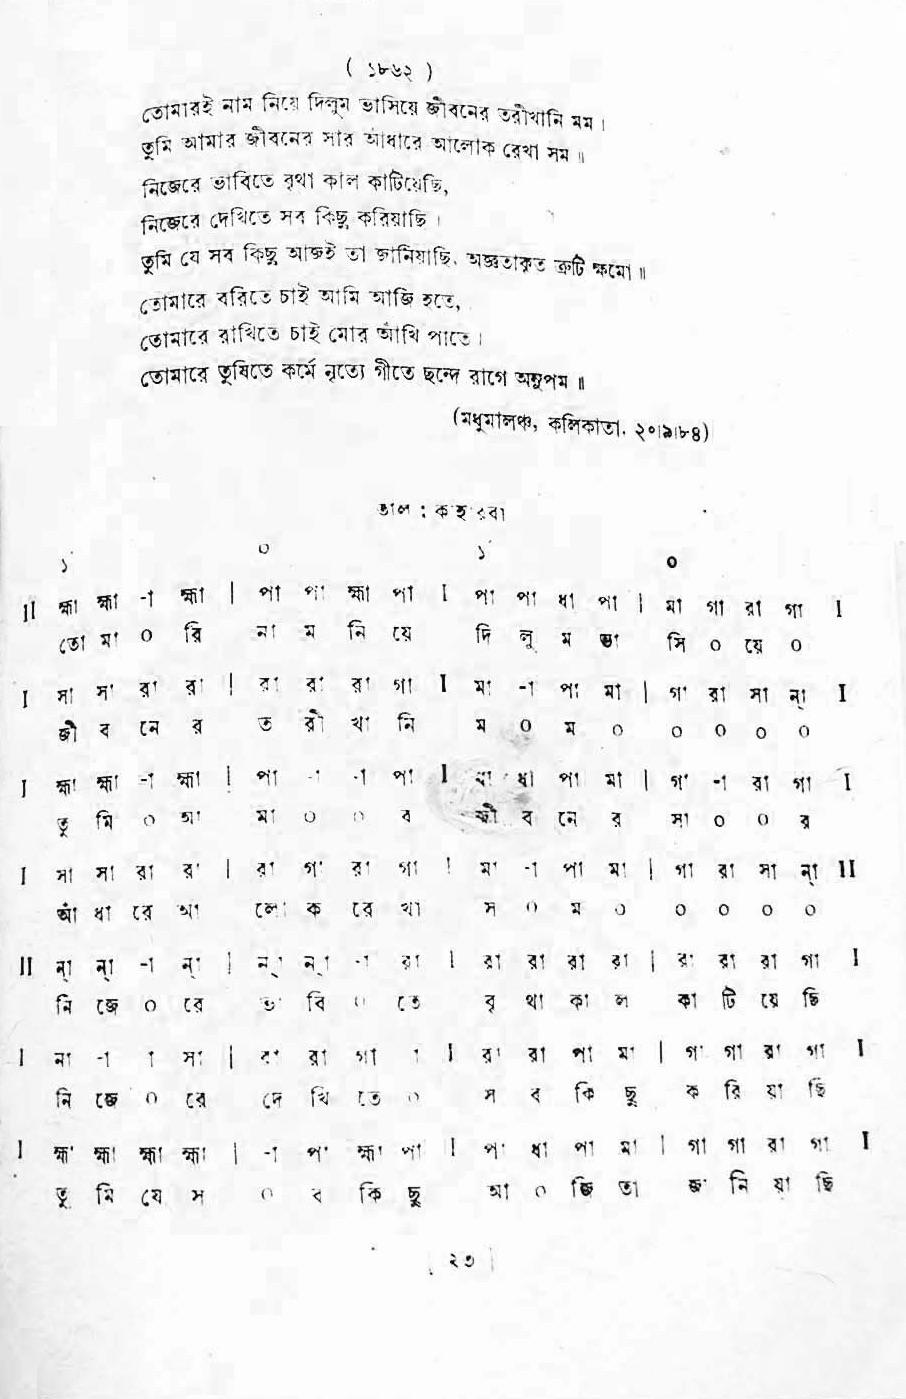 ( ১৮৬২ )
তোমারই নাম নিয়ে দিলুম ভাসিয়ে জীবনের তরীখানি মম।
তুমি আমার জীবনের সার আঁধারে আলোক রেখা সম॥
নিজেরে ভাবিতে বৃথা কাল কাটিয়েছি,
নিজেরে দেখিতে সব কিছু করিয়াছি।
তুমি যে সব কিছু আজই তা জানিয়াছি, অজ্ঞতাকৃত ত্রুটি ক্ষমো॥
তোমারে বরিতে চাই আমি আজি হতে,
তোমারে রাখিতে চাই মোর আঁখি পাতে।
তোমারে তুষিতে কর্মে নৃত্যে গীতে ছন্দে রাগে অনুপম॥
(মধুমালঞ্চ, কলিকাতা, ২০।৯।৮৪)
তাল : কাহারবা
১´ ০ ১´ ০
II হ্মা হ্মা -া হ্মা | পা পা হ্মা পা I পা পা ধা পা | মা গা রা গা I
তো মা ০ রি না ম নি য়ে দি লু ম ভা সি ০ য়ে ০
I সা সা রা রা | রা রা রা গা I মা -া পা মা | গা রা সা ন্া I
জী ব নে র ত রী খা নি ম ০ ম ০ ০ ০ ০ ০
I হ্মা হ্মা -া হ্মা | পা -া -া পা I ধা পা মা | গা -া রা গা I
তু মি ০ আ মা ০ ০ র জী ব নে র সা ০ ০ র
I সা সা রা রা | রা গা রা গা I মা -া পা মা | গা রা সা ন্া II
আঁ ধা রে আ লো ক রে খা স ০ ম ০ ০ ০ ০ ০
II ন্া ন্া -া ন্া | ন্া ন্া -া রা I রা রা রা রা | রা রা রা গা I
নি জে ০ রে ভা বি ০ তে বৃ থা কা ল কা টি য়ে ছি
I না -া া সা | রা রা গা া I রা রা পা মা | গা গা রা গা I
নি জে ০ রে দে খি তে ০ স ব কি ছু ক রি য়া ছি
I হ্মা হ্মা হ্মা হ্মা | -া পা হ্মা পা I পা ধা পা মা | গা গা রা গা I
তু মি যে স ০ ব কি ছু আ ০ জি তা জা নি য়া ছি
[ ২৩ ]